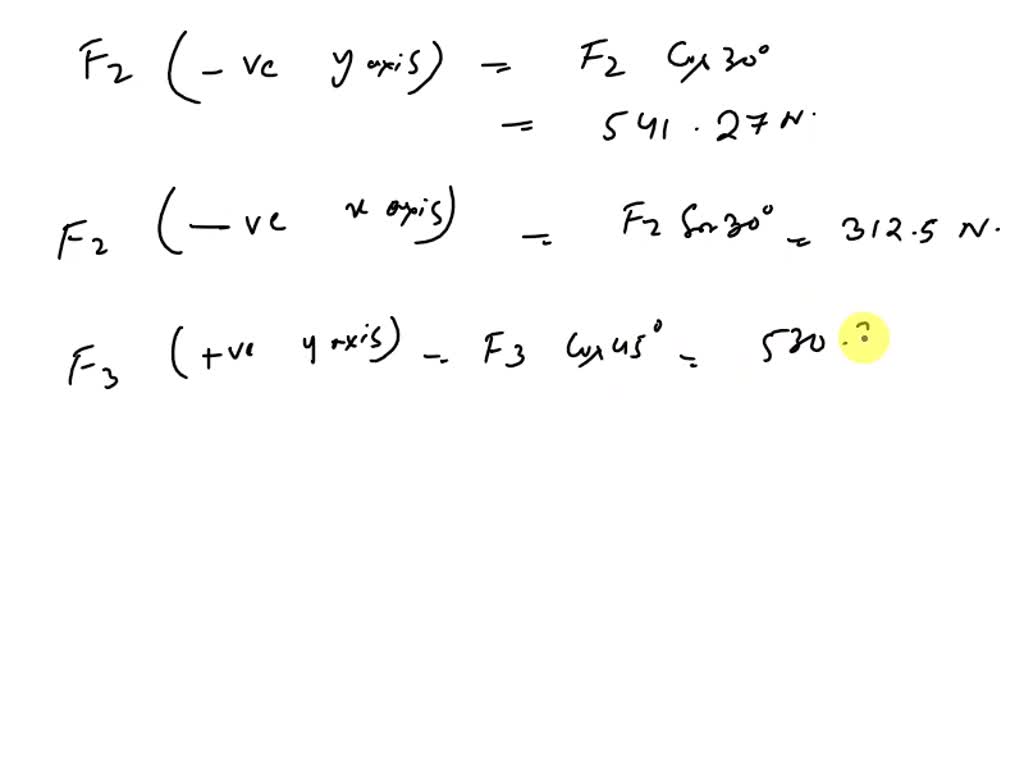 F2 (-ve y axis) = F2 Cos 30°
= 541.27 N.
F2 (-ve x axis) = F2 Sin 30° = 312.5 N.
F3 (+ve y axis) - F3 Cos 45° = 530.3